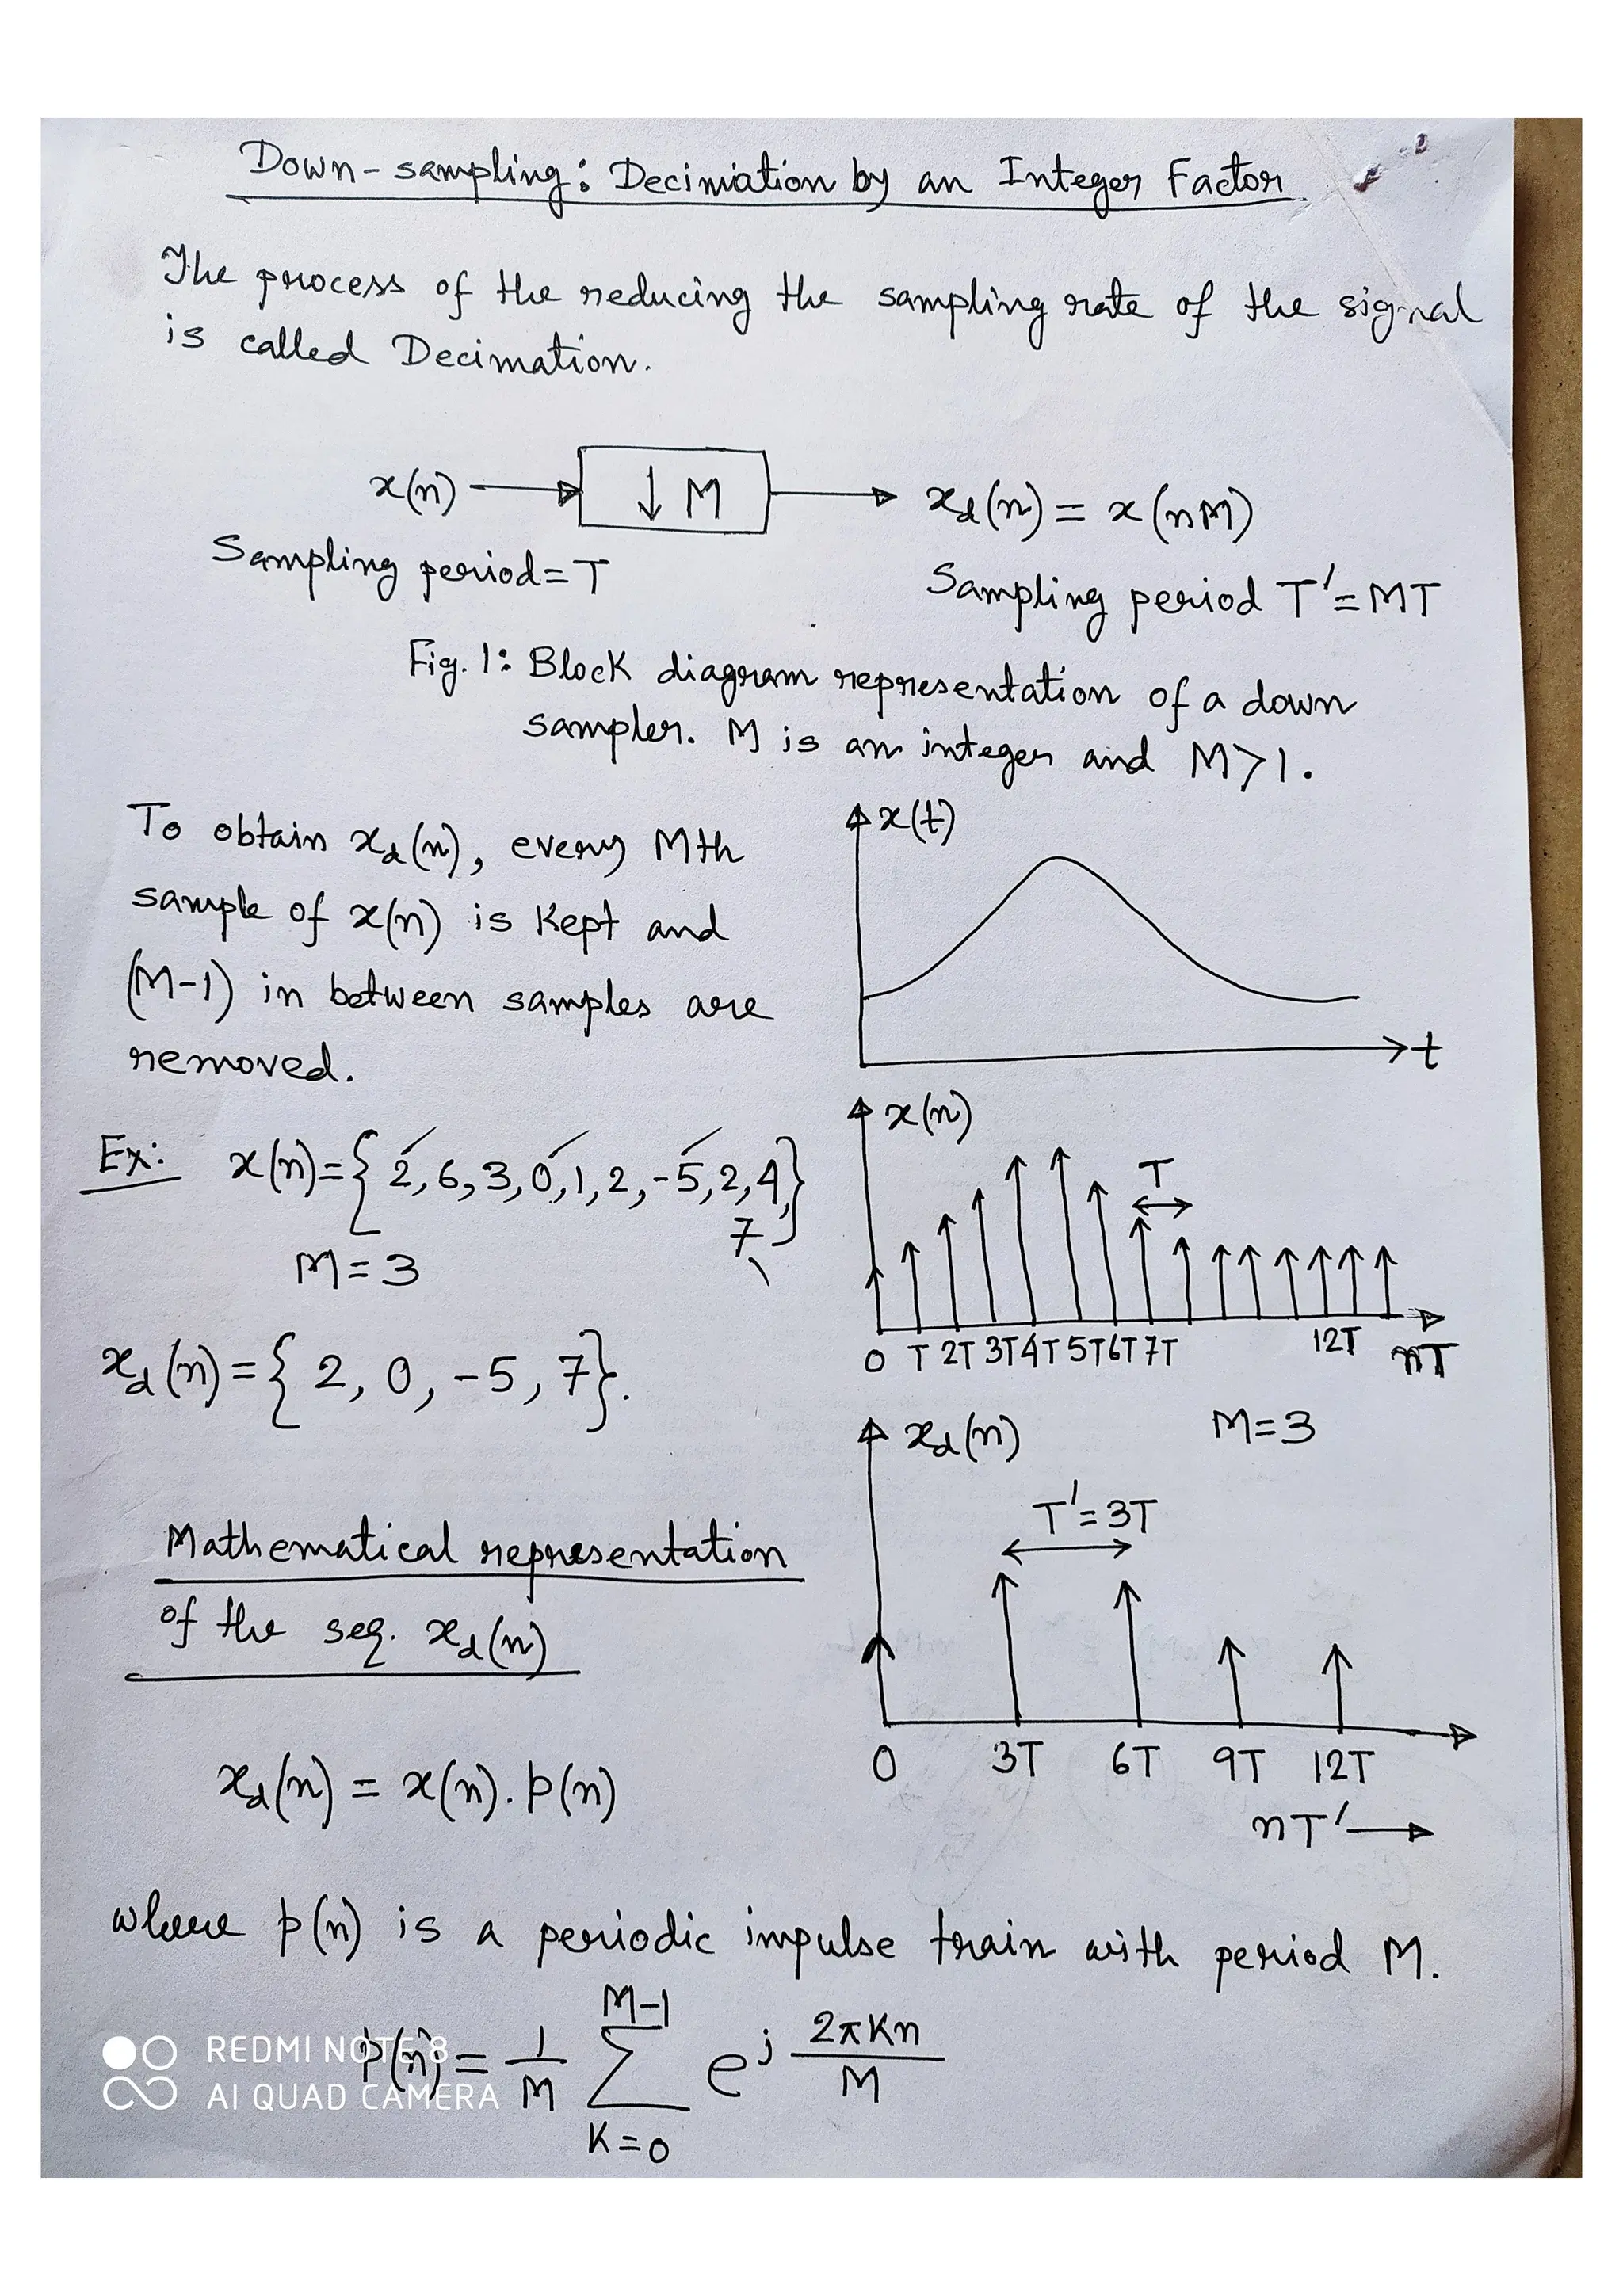 Down-sampling: Decimation by an Integer Factor
The process of the reducing the sampling rate of the signal
is called Decimation.
x(n) → ↓ M → x_d(n) = x(nM)
Sampling period = T
Sampling period T' = MT
Fig. 1: Block diagram representation of a down
sampler. M is an integer and M>1.
To obtain x_d(n), every Mth
sample of x(n) is Kept and
(M-1) in between samples are
removed.
x(t)
t
Ex: x(n) = { 2, 6, 3, 0, 1, 2, -5, 2, 4,
7 }
M = 3
x_d(n) = { 2, 0, -5, 7 }.
x(n)
T
0 T 2T 3T 4T 5T 6T 7T 12T nT
x_d(n) M=3
T' = 3T
0 3T 6T 9T 12T
nT' →
Mathematical representation
of the seq. x_d(n)
x_d(n) = x(n). p(n)
where p(n) is a periodic impulse train with period M.
p(n) = \frac{1}{M} \sum_{K=0}^{M-1} e^{j \frac{2πKn}{M}}
REDMI NOTE 8
AI QUAD CAMERA